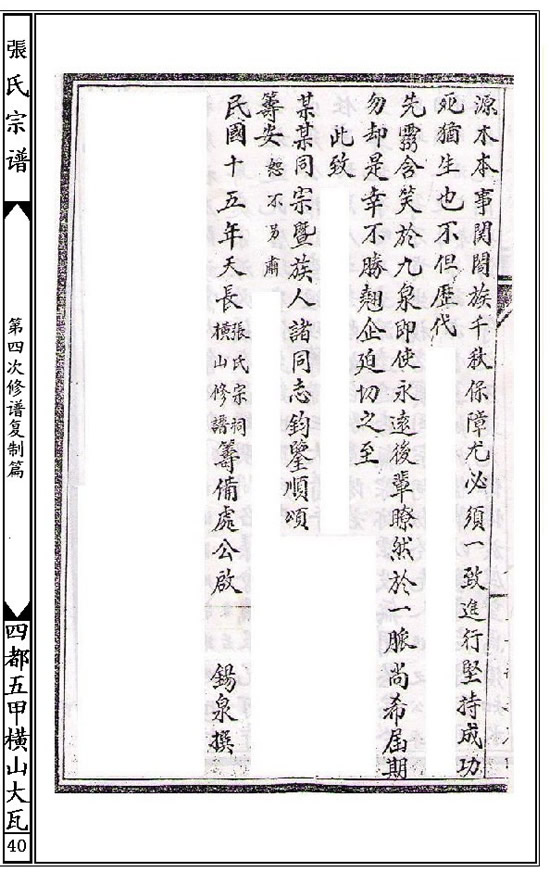 源木本事関閤族千秋保障尤必須一致進行堅持成功
死猶生也不但歷代
先靈含笑於九泉即使永遠後輩瞭然於一脈尚希届期
勿却是幸不勝翹企廹切之至
此致
某某同宗暨族人諸同志鈞鑒順頌
籌安 恕不另肅
民國十五年天長張氏宗祠橫山修譜籌俻處公啟 錫泉撰
張氏宗谱
第四次修谱复制篇
四都五甲橫山大瓦
40